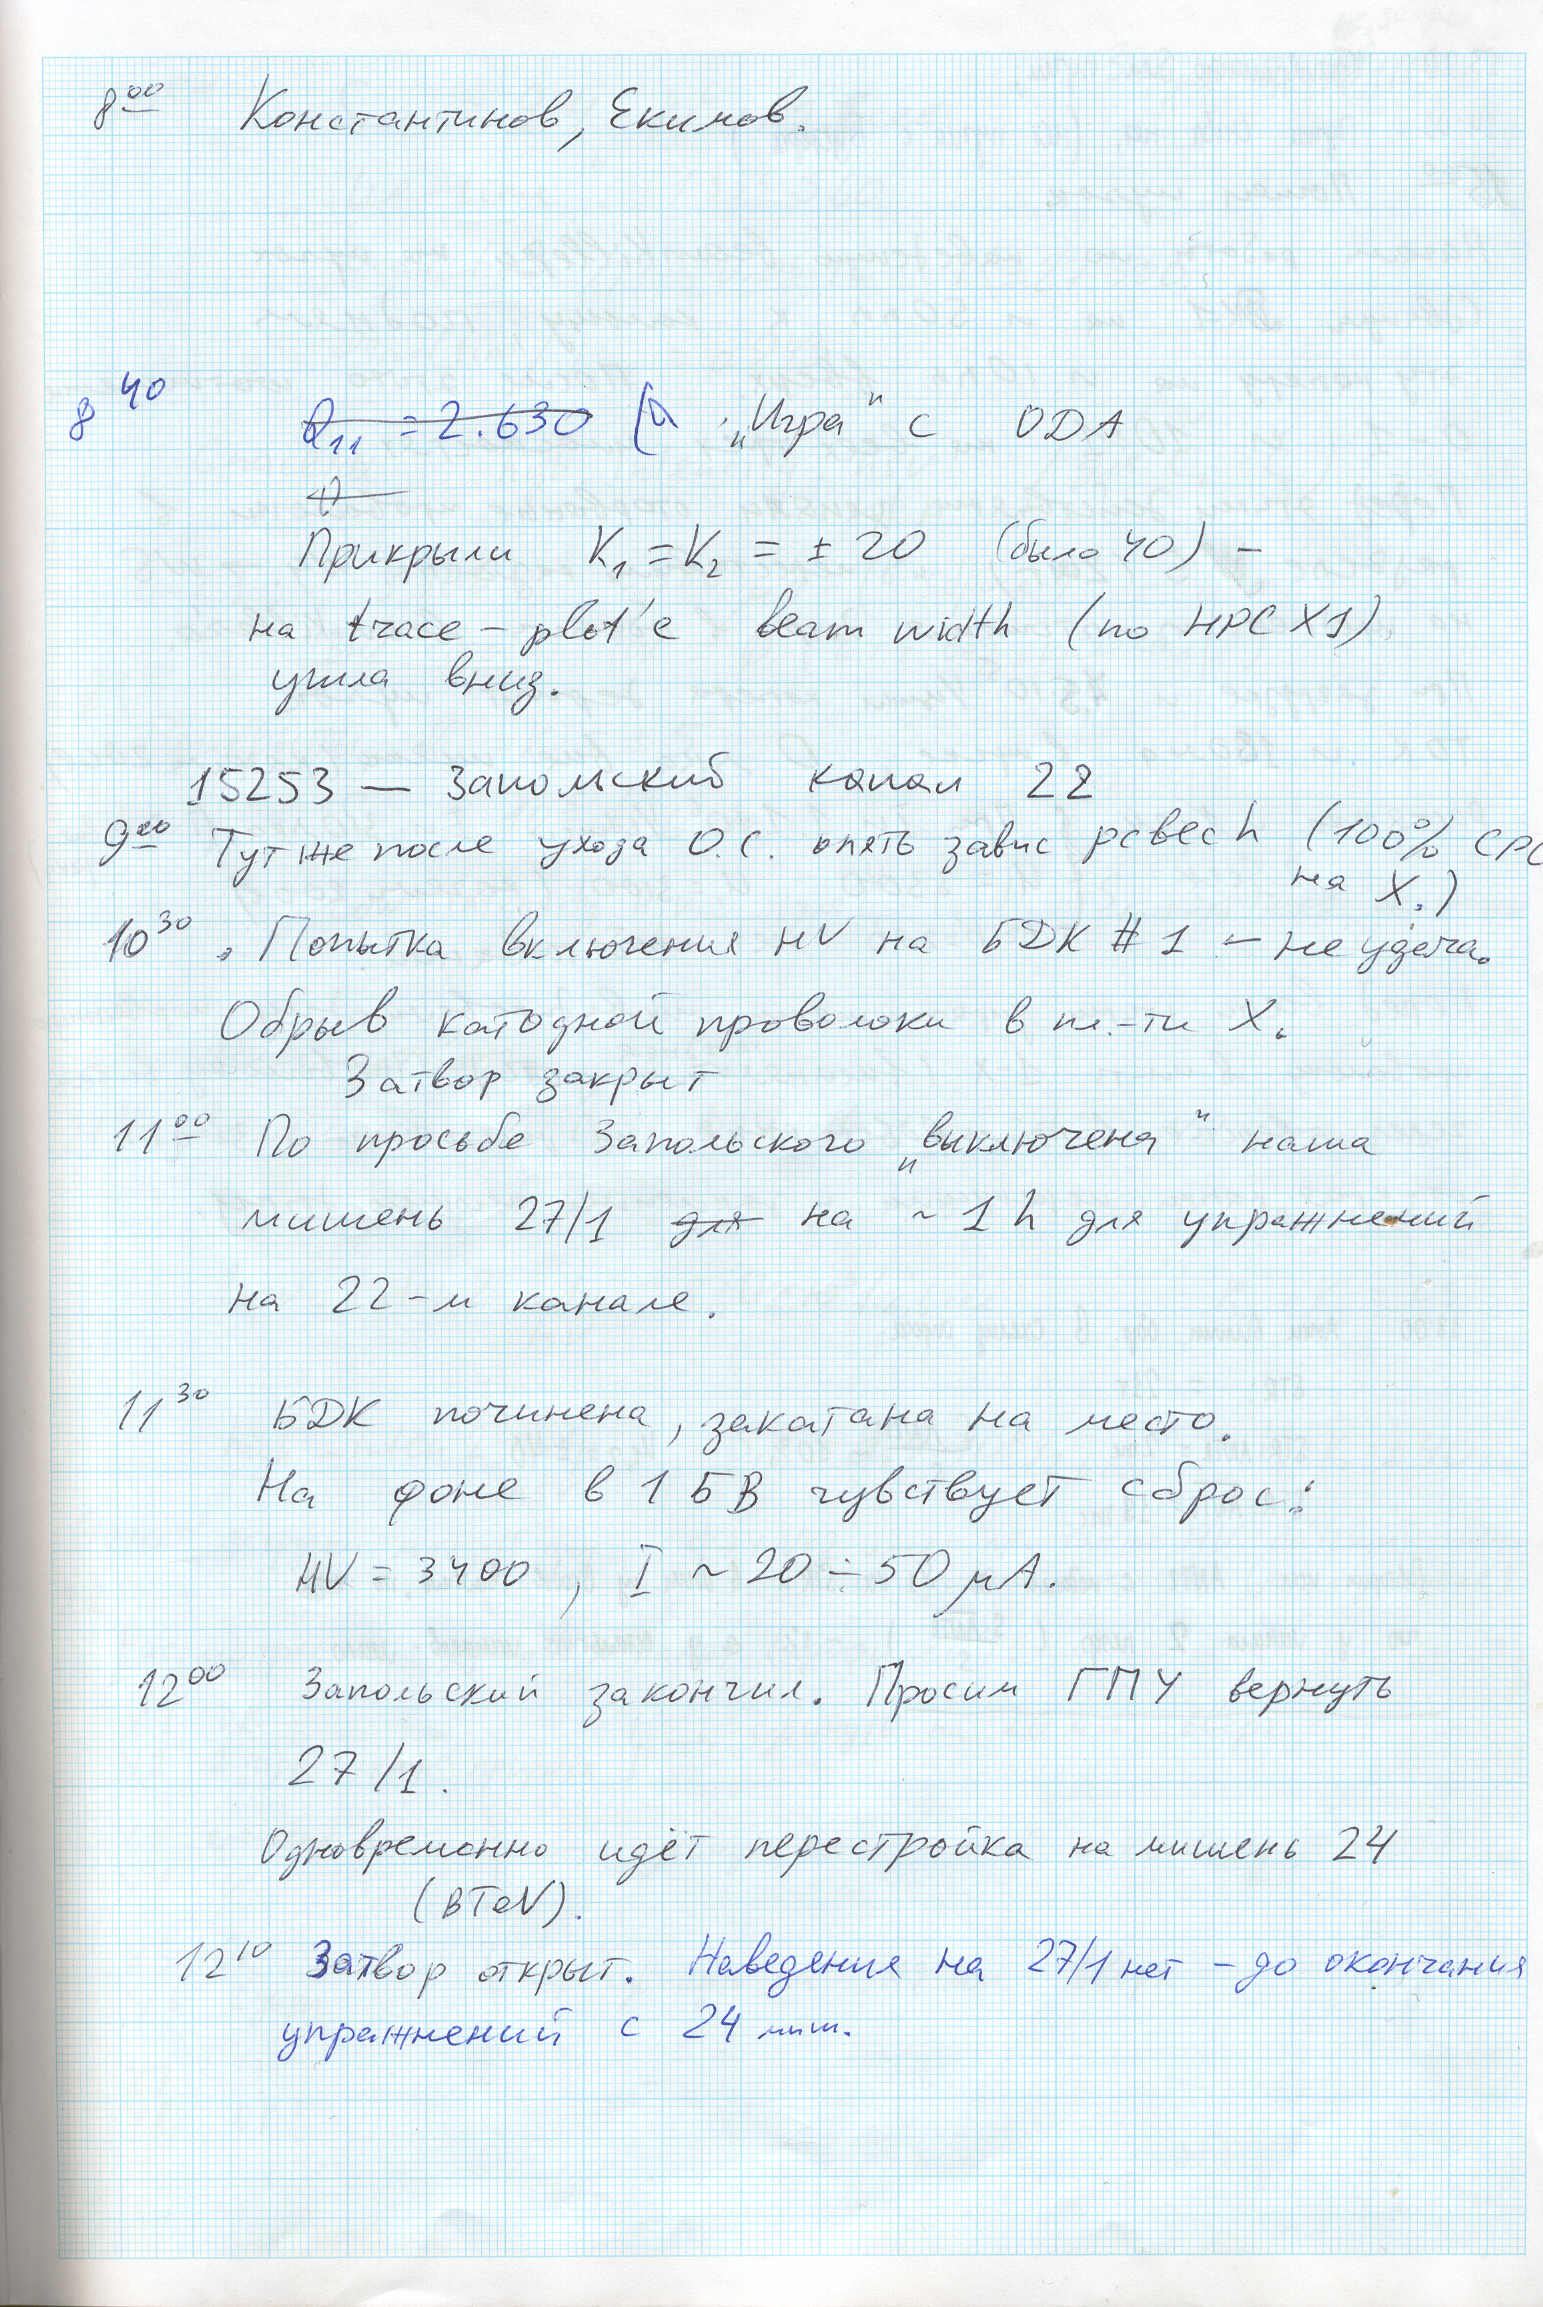 8⁰⁰ Константинов, Екимов.
8⁴⁰ Q₁₁ = 2.630 „Игра" с ODA
Прикрыли K₁ = K₂ = ± 20 (было 40) –
на trace-plot'е beam width (по HPC X1)
ушла вниз.
15253 — Запольский канал 22
9⁰⁰ Тут же после ухода О.С. опять завис pcbech (100% CPU
на X.)
10³⁰. Попытка включения HV на БДК #1 – неудача.
Обрыв катодной проволоки в пл.-ти X.
Затвор закрыт
11⁰⁰ По просьбе Запольского „выключена" наша
мишень 27/1 для на ~ 1 h для упражнений
на 22-м канале.
11³⁰ БДК починена, закатана на место.
На фоне в 1 БВ чувствует сброс:
HV = 3400, I ~ 20 ÷ 50 μA.
12⁰⁰ Запольский закончил. Просим ГПУ вернуть
27/1.
Одновременно идёт перестройка на мишень 24
(BTeV).
12¹⁰ Затвор открыт. Наведения на 27/1 нет – до окончания
упражнений с 24 миш.